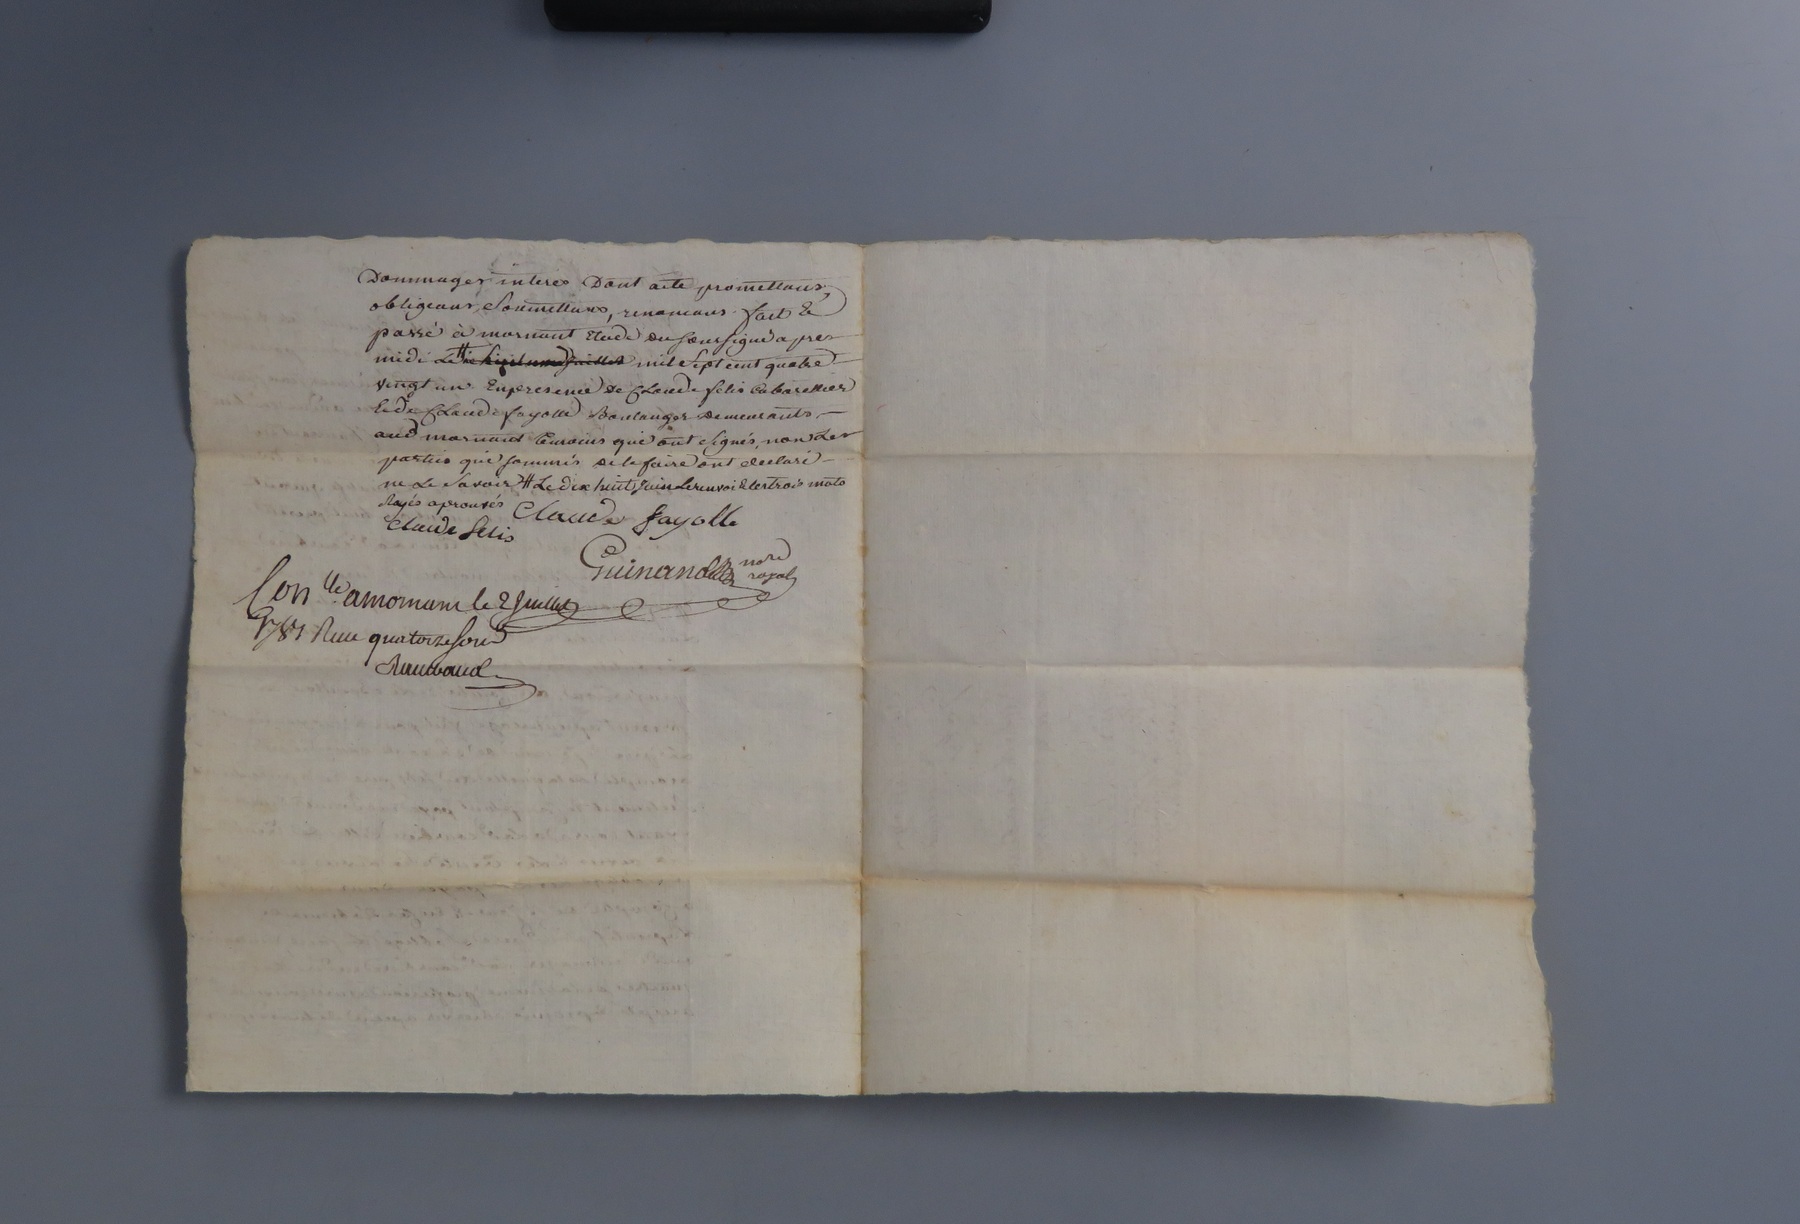 Dommages interes Dont acte promettans,
obligeans, Soumettans, renonceans. fait &
passé à mornant Etude du soussigné apres
midi Le # mil sept cent quatre
vingt un En presence De Claude felis Cabarettier
Et de Claude fayolle Boulanger demeurants
aud mornand temoins qui ont signés, non Les
parties qui sommés de le faire ont declaré
ne Le Savoir # Le dix huit Juin Le renvoi & les trois mots
Rayés aprouvés Claude fayolle
Claude felis
Guinand no.re
royal
Con.lle a mornant le 2 Juillet
1781 Reçu quatorze sous